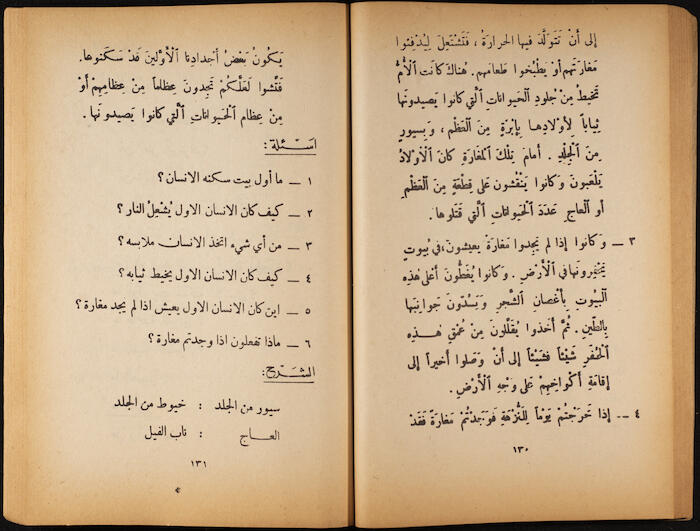 إلى أنْ تَتَوَلَّدَ فيها الحرارةُ، فَتَشْتَعِلَ لِيُدَفِّئوا
مَغارَتَهم أوْ يَطْبُخوا طعامهم. هناكَ كانَتِ ٱلْأُمُّ
تَخيطُ مِنْ جُلودِ ٱلحَيواناتِ ٱلَّتي كانوا يَصيدونَها
ثِياباً لِأَوْلادِها بِإبْرَةٍ مِنَ ٱلعَظْمِ، وَبِسيورٍ
مِنَ ٱلْجِلْدِ. أمامَ تِلْكَ ٱلْمَغارَةِ كانَ ٱلْأَوْلادُ
يَلْعَبونَ وَكانُوا يَنْقُشونَ على قِطْعَةٍ مِنَ ٱلعَظْمِ
أوِ ٱلعاجِ عَدَدَ ٱلحَيَواناتِ ٱلَّتي قَتَلوها.
٣ ــ وَكانُوا إذا لم يَجِدوا مَغارَةً يَعيشونَ، في بُيوتٍ
يَحْفِرونَها في ٱلْأَرْضِ. وَكانُوا يُغَطُّونَ أعْلى هٰذِهِ
ٱلْبُيوتِ بِأَغْصانِ ٱلشَّجرِ وَيَسُدّونَ جوانِبَها
بِالطّينِ. ثُمَّ أخَذوا يُقَلِّلونَ مِنْ عُمْقِ هٰذِهِ
ٱلْحُفَرِ شَيْئاً فَشَيْئاً إلى أنْ وَصَلوا أخيراً إلى
إقامَةِ أكْواخِهِمْ على وَجْهِ ٱلْأَرْضِ.
٤ ــ إذا خَرَجْتُمْ يَوْماً لِلنُّزْهَةِ فَوَجَدْتُمْ مَغارَةً فَقَدْ
١٣٠
يَكُونُ بَعْضُ أجْدادِنا ٱلْأَوَّلينَ قَدْ سَكَنوها.
فَتِّشوا لَعَلَّكُمْ تَجِدونَ عِظاماً مِنْ عِظامِهِمْ أوْ
مِنْ عِظامِ ٱلْحَيواناتِ ٱلَّتي كانُوا يَصيدونَها.
اسئلة:
١ ــ ما أول بيت سكنه الانسان؟
٢ ــ كيف كان الانسان الاول يُشعِلُ النار؟
٣ ــ من أي شيء اتخذ الانسان ملابسه؟
٤ ــ كيف كان الانسان الاول يخيط ثيابه؟
٥ ــ اين كان الانسان الاول يعيش اذا لم يجد مغارة؟
٦ ــ ماذا تفعلون اذا وجدتم مغارة؟
الشرح:
سيور من الجلد : خيوط من الجلد
العاج : ناب الفيل
١٣١